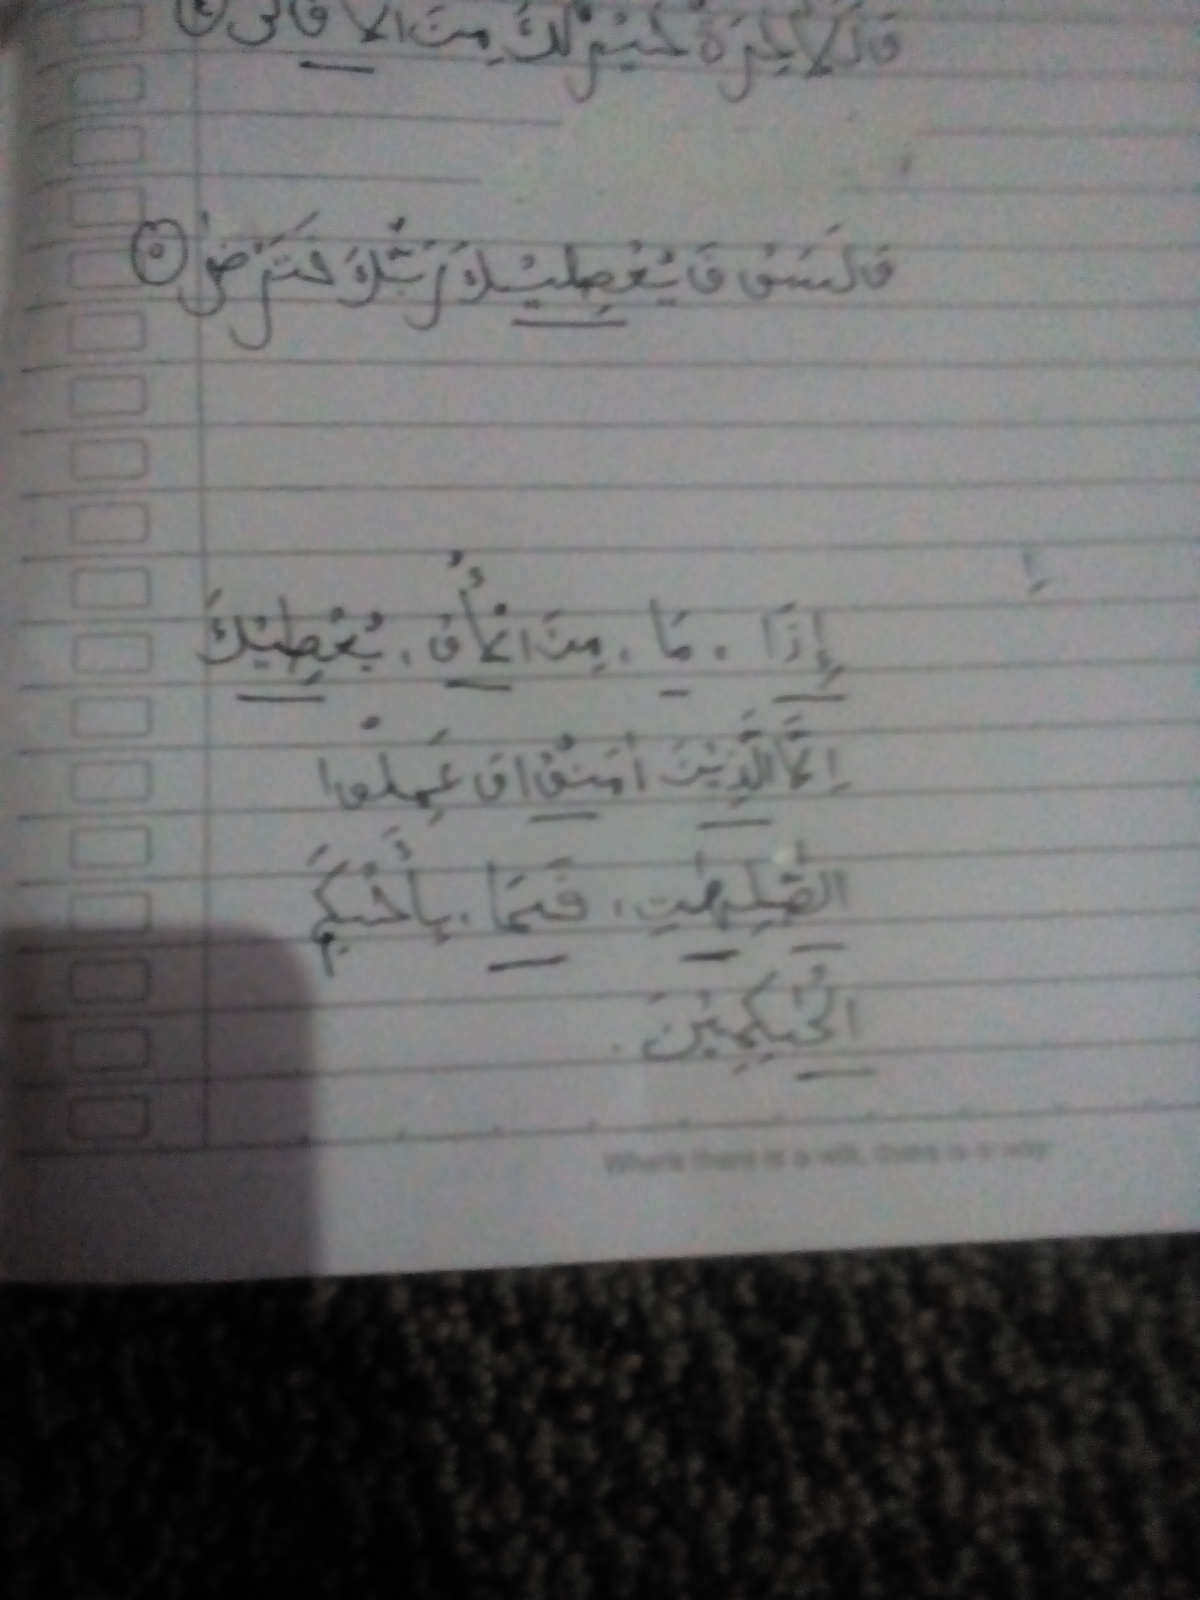 وَلَلْأٰخِرَةُ خَيْرٌ لَّكَ مِنَ الْأُوْلٰى ٤
وَلَسَوْفَ يُعْطِيْكَ رَبُّكَ فَتَرْضٰى ٥
إِ
إِذَا . مَا . مِنَ الْأُوْ . يُعْطِيْكَ
اِلَّا الَّذِيْنَ اٰمَنُوْا وَ عَمِلُوا
الصّٰلِحٰتِ . فَمَا . بِأَحْكَمِ
الْحٰكِمِيْنَ .
Where there is a will, there is a way